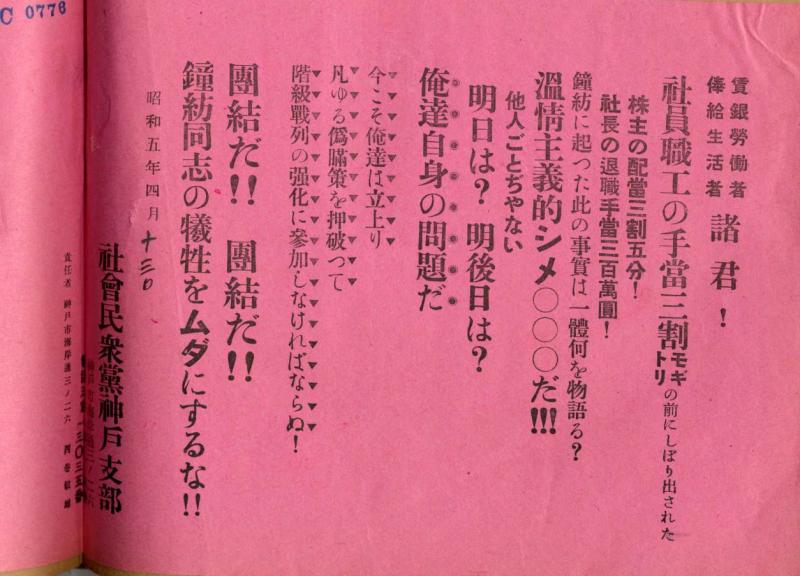 C 0776
賃銀勞働者
俸給生活者
諸君！
社員職工の手當三割モギトリの前にしぼり出された
株主の配當三割五分！
社長の退職手當三百萬圓！
鐘紡に起つた此の事實は一體何を物語る？
溫情主義的シメ〇〇〇だ!!!
他人ごとぢやない
明日は？ 明後日は？
俺達自身の問題だ
今こそ俺達は立上り
凡ゆる僞瞞策を押破つて
階級戰列の强化に參加しなければならぬ！
團結だ!! 團結だ!!
鐘紡同志の犧牲をムダにするな!!
昭和五年四月十三日
社會民衆黨神戶支部
責任者 神戶市海岸通三ノ二六